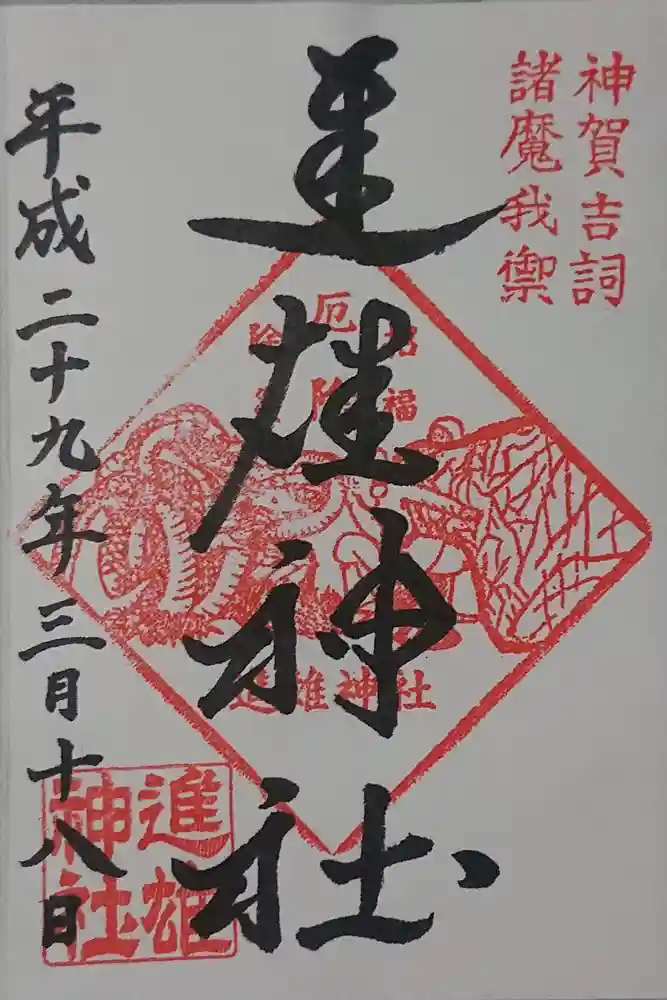 神賀吉詞
諸魔我禦
招福
厄除
除
進雄神社
進雄神社
進雄
神社
平成二十九年三月十八日